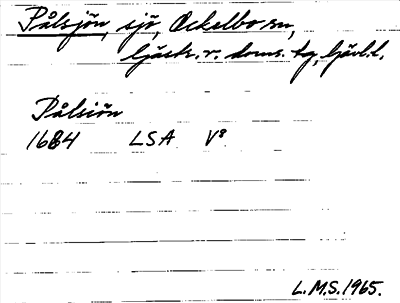 Pålsjön, sjö, Ockelbo sn,
Gästr. v. doms. tg, Gävl. l.
Pålsiön
1684 LSA V⁸
L.M.S. 1965.